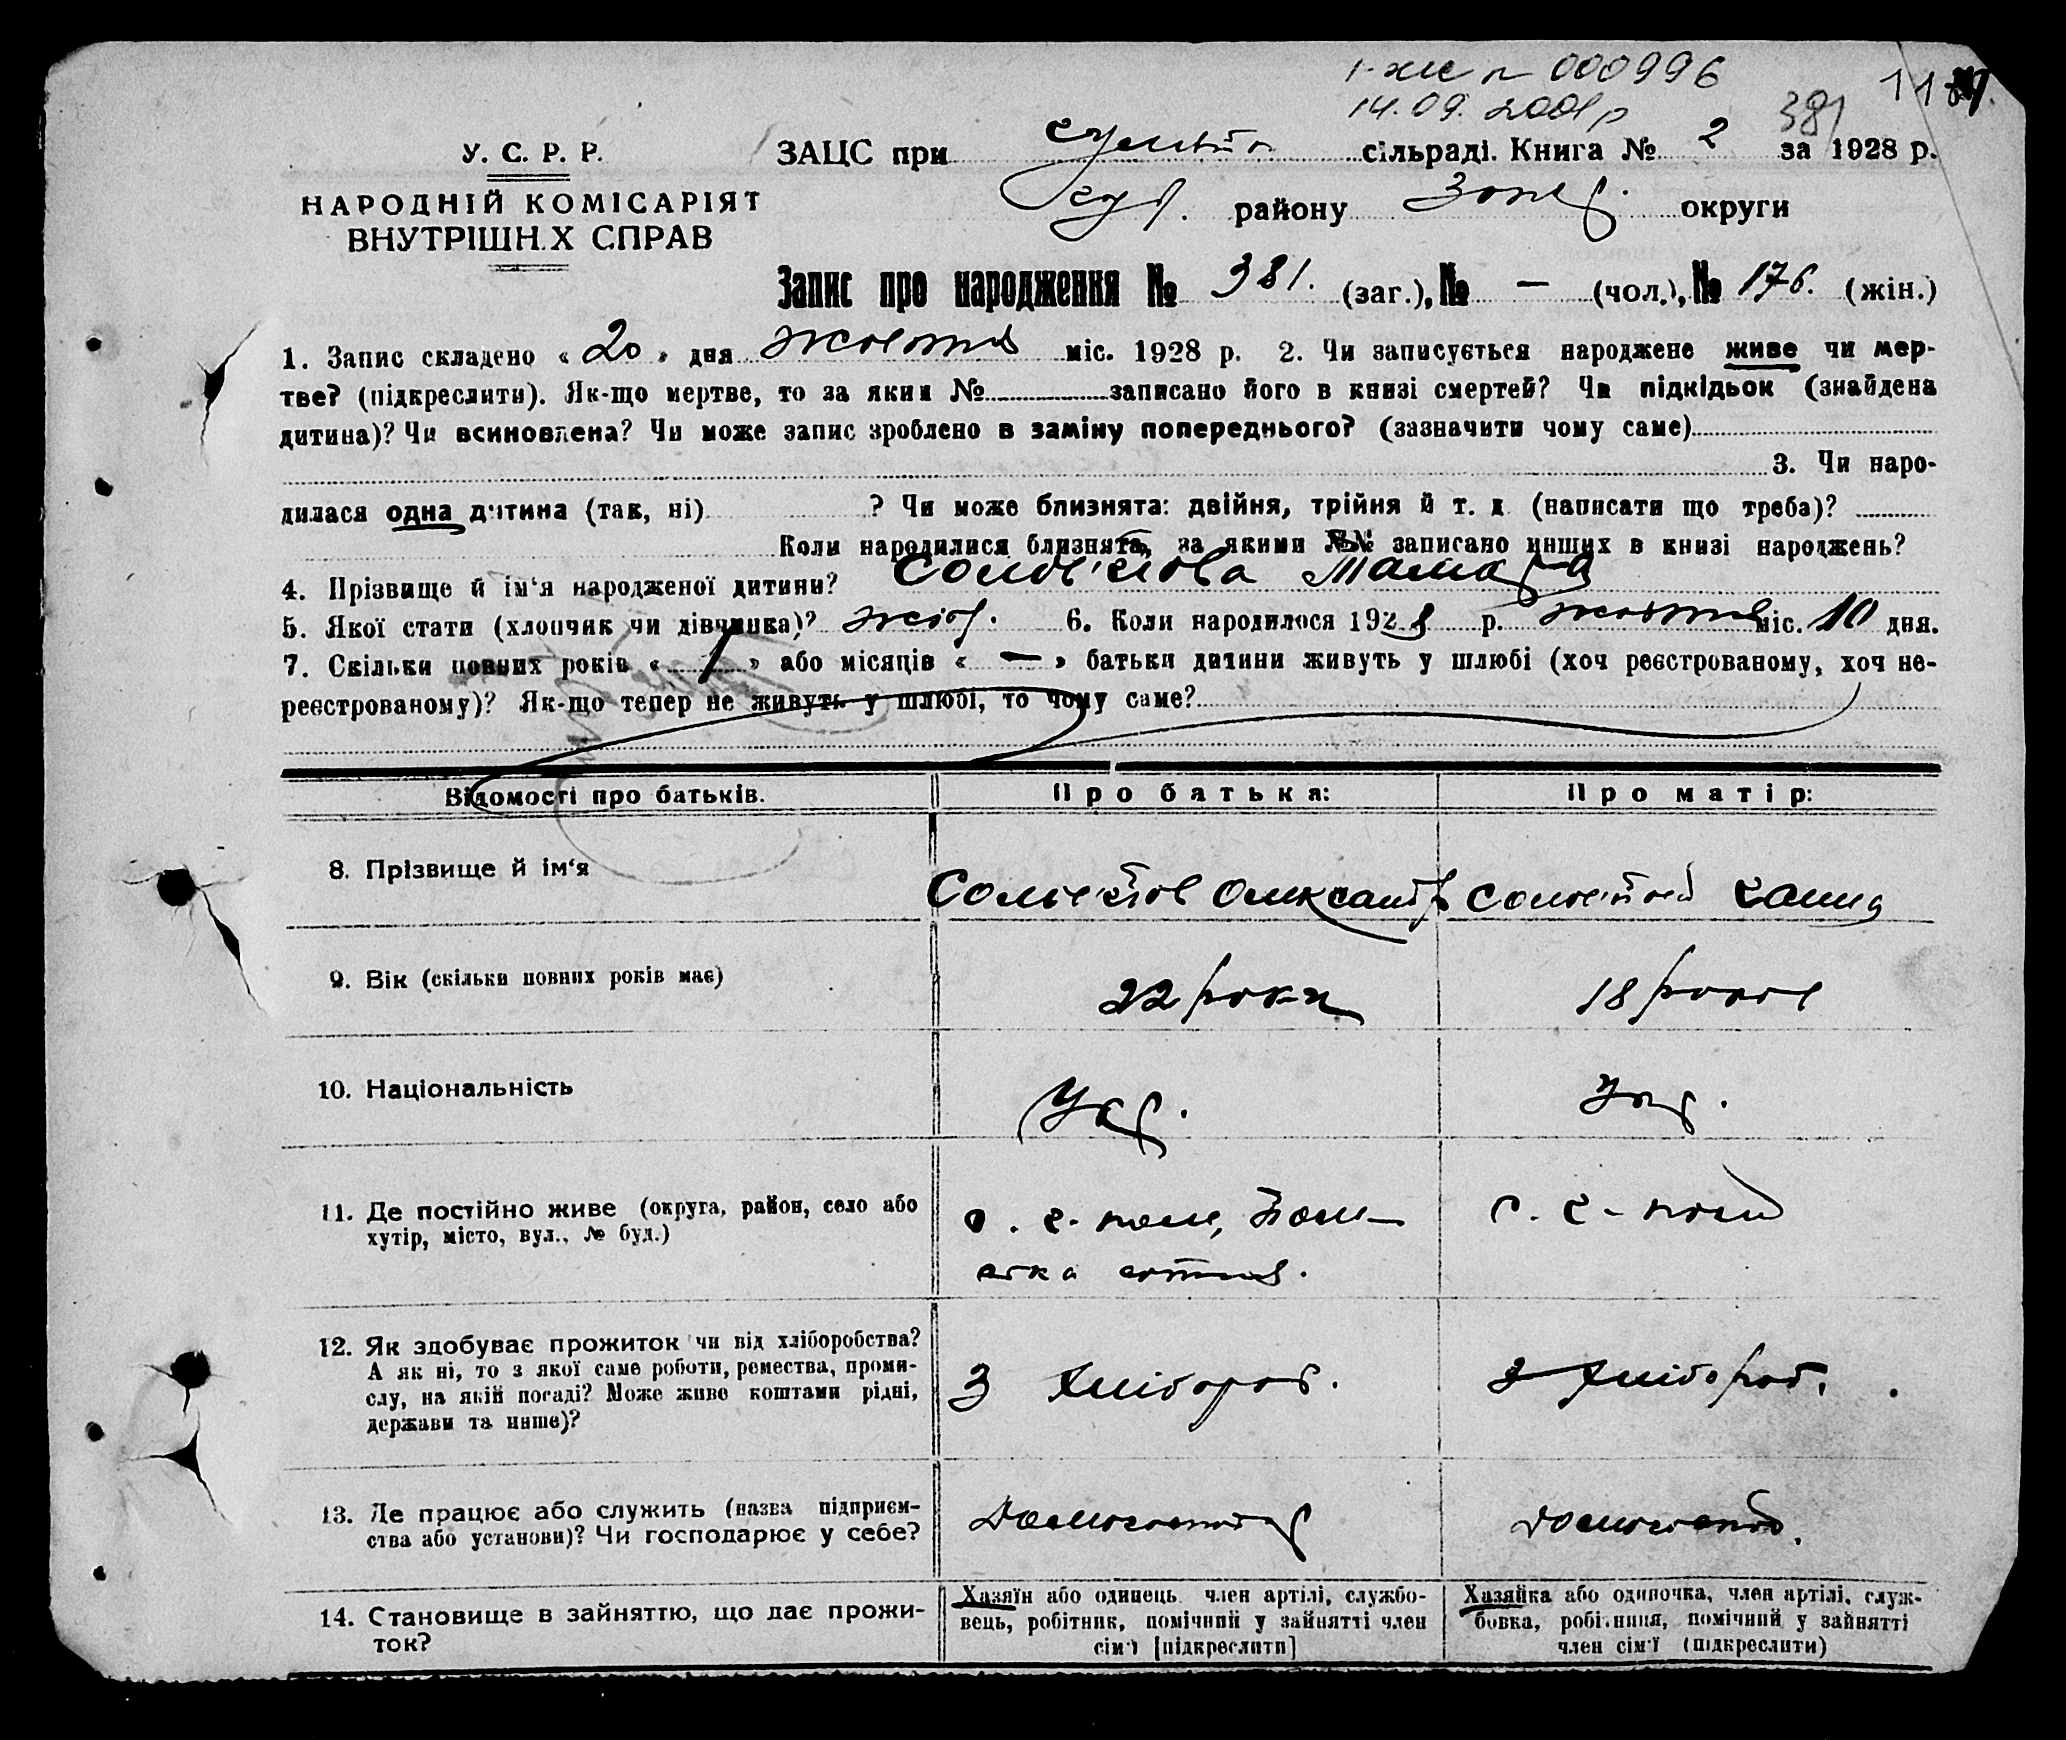 № 000996
14.09.2001р
381
У. С. Р. Р.
ЗАЦС при сільраді. Книга № 2 за 1928 р.
НАРОДНІЙ КОМІСАРІЯТ
ВНУТРІШН.Х СПРАВ
району округи
Запис про народження № 381. (заг.), № — (чол.), № 176. (жін.)
1. Запис складено « 20 » дня жовтня міс. 1928 р. 2. Чи записується народжене живе чи мер-
тве? (підкреслити). Як-що мертве, то за яким № записано його в книзі смертей? Чи підкідьок (знайдена
дитина)? Чи всиновлена? Чи може запис зроблено в заміну попереднього? (зазначити чому саме)
3. Чи наро-
дилася одна дитина (так, ні) ? Чи може близнята: двійня, трійня й т. д. (написати що треба)?
Коли народилися близнята, за якими №№ записано инших в книзі народжень?
4. Прізвище й ім‘я народженої дитини? Тамара
5. Якої стати (хлопчик чи дівчинка)? жіноч. 6. Коли народилося 1928 р. жовтня міс. 10 дня.
7. Скільки повних років « 1 » або місяців « — » батьки дитини живуть у шлюбі (хоч реєстрованому, хоч не-
реєстрованому)? Як-що тепер не живуть у шлюбі, то чому саме?
Відомості про батьків. Про батька: Про матір:
8. Прізвище й ім‘я Олександр
9. Вік (скільки повних років має) 22 роки 18 років
10. Національність Укр. Укр.
11. Де постійно живе (округа, район, село або
хутір, місто, вул., № буд.)
12. Як здобуває прожиток чи від хліборобства? З хлібороб. З хлібороб.
А як ні, то з якої саме роботи, ремества, проми-
слу, на якій посаді? Може живе коштами рідні,
держави та инше)?
13. Де працює або служить (назва підприєм-
ства або установи)? Чи господарює у себе?
14. Становище в зайняттю, що дає прожи-
ток?
Хазяїн або одинець член артілі, службо-
вець, робітник, помічний у зайнятті член
сім‘ї [підкреслити]
Хазяйка або одиночка, член артілі, служ-
бовка, робітниця, помічний у зайнятті
член сім‘ї (підкреслити)